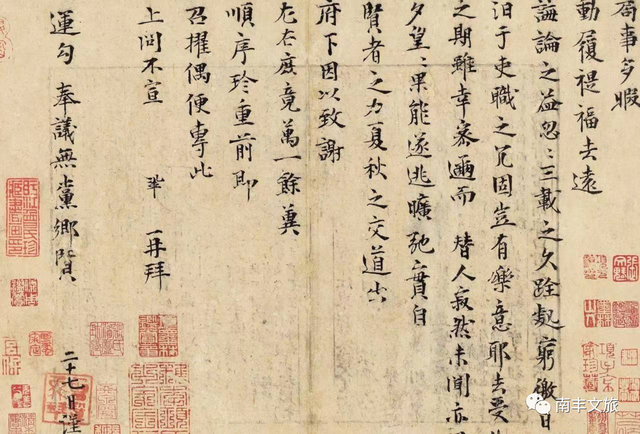 局事多暇
動履禔福去遠
誨論之益忽〻三載之久跧處窮徼日
汨于吏職之冗固豈有樂意耶去受
之期雖幸密邇而 替人寂然未聞亦
夕望〻果能遂逃曠弛實自
賢者之力夏秋之交道出
府下因以致謝
左右庶竟萬一餘冀
順序珍重前即
召擢偶便專此
上問不宣 鞏 再拜
運勾 奉議無黨鄉賢
二十七日謹
南丰文旅